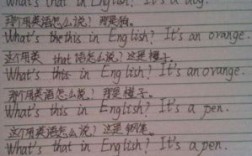 What's that in English? It's a bag.
那个用英语怎么说? 那是
What's the this in English? It's an orange.
这个用 that 语怎么说? 这是橘子.
What's this in English? It's an orange.
那个用英语怎么说? 那是橘子.
What's this in English? It's a pen.
这个用英语怎么说? 这是钢笔.
What's that in English? It's a pen.